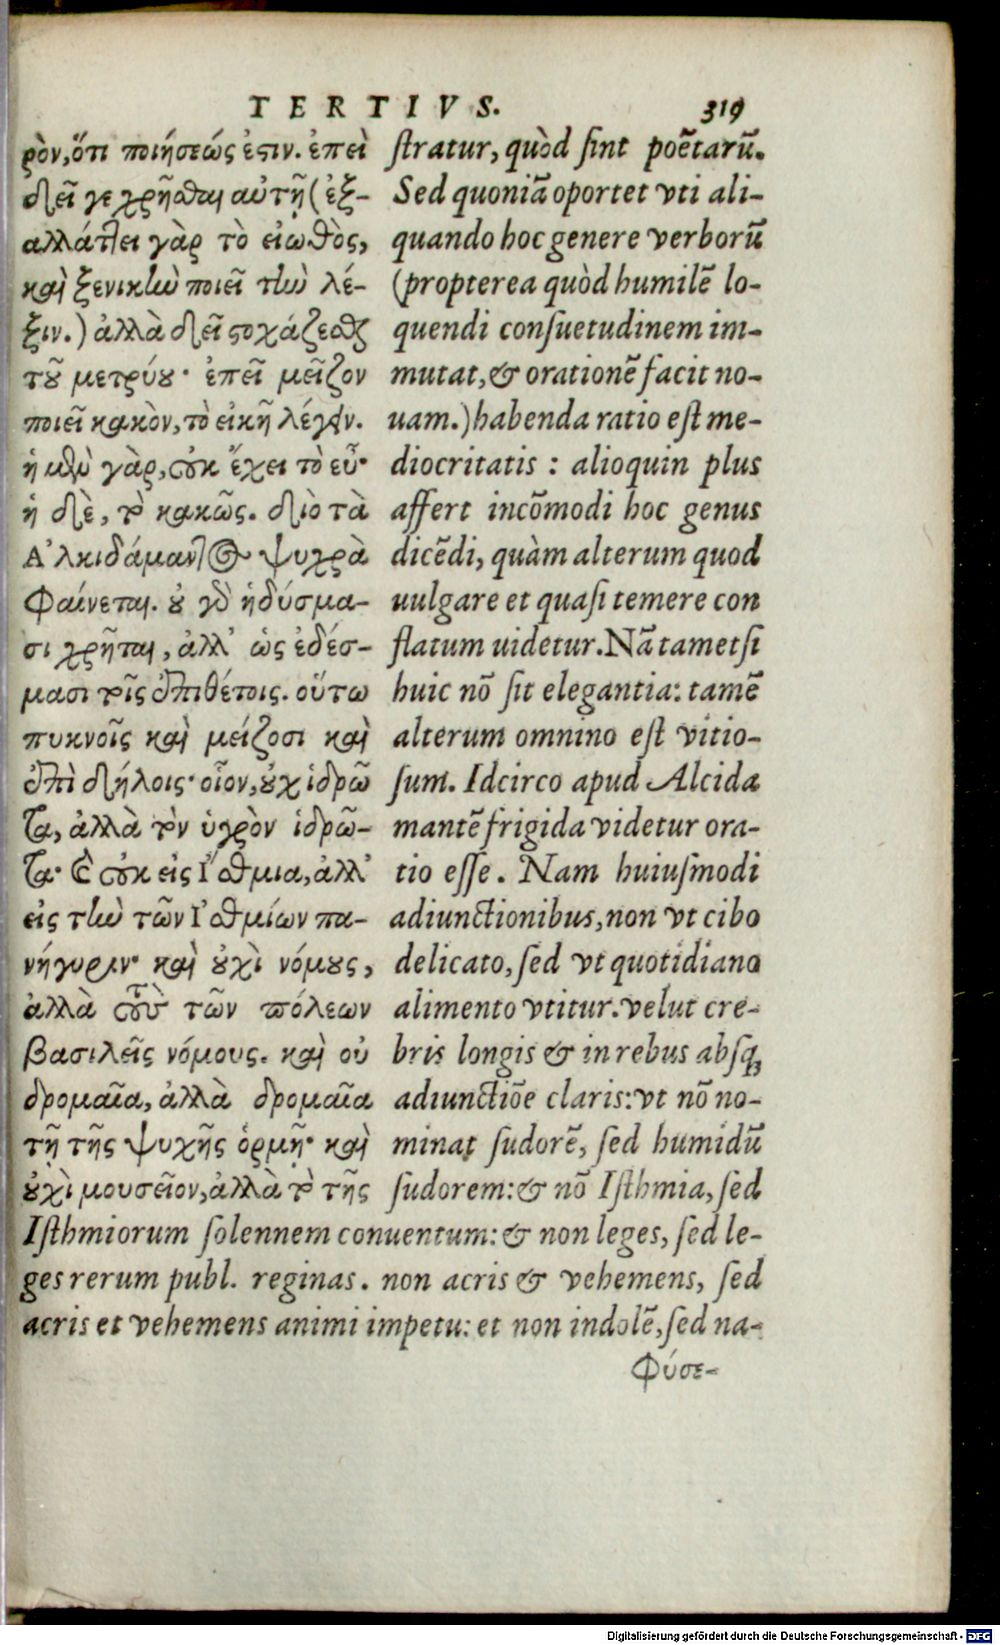 TERTIVS. 319
ρὸν, ὅτι ποιήσεώς ἐστιν. ἐπεὶ
δεῖ γε χρῆσθαι αὐτῇ (ἐξ-
αλλάττει γὰρ τὸ εἰωθὸς,
καὶ ξενικὴν ποιεῖ τὴν λέ-
ξιν.) ἀλλὰ δεῖ στοχάζεσθαι
τοῦ μετρίου· ἐπεῖ μεῖζον
ποιεῖ κακὸν, τὸ εἰκῆ λέγειν.
ἡ μὲν γὰρ, οὐκ ἔχει τὸ εὖ·
ἡ δὲ, τὸ κακῶς. διὸ τὰ
Ἀλκιδάμαντος ψυχρὰ
φαίνεται. οὐ γὰρ ἡδύσμα-
σι χρῆται, ἀλλ' ὡς ἐδέσ-
μασι τοῖς ἐπιθέτοις. οὕτω
πυκνοῖς καὶ μείζοσι καὶ
ἐπὶ δήλοις· οἷον, οὐχ ἱδρῶ
τα, ἀλλὰ τὸν ὑγρὸν ἱδρῶ-
τα· καὶ οὐκ εἰς Ἴσθμια, ἀλλ'
εἰς τὴν τῶν Ἰσθμίων πα-
νήγυριν· καὶ οὐχὶ νόμους,
ἀλλὰ τοὺς τῶν πόλεων
βασιλεῖς νόμους. καὶ οὐ
δρομαῖα, ἀλλὰ δρομαῖα
τῇ τῆς ψυχῆς ὁρμῇ· καὶ
οὐχὶ μουσεῖον, ἀλλὰ τὸ τῆς
stratur, quòd sint poẽtarũ.
Sed quoniã oportet vti ali-
quando hoc genere verborũ
(propterea quòd humilẽ lo-
quendi consuetudinem im-
mutat, & orationẽ facit no-
uam.) habenda ratio est me-
diocritatis : alioquin plus
affert incõmodi hoc genus
dicẽdi, quàm alterum quod
uulgare et quasi temere con
flatum uidetur. Nã tametsi
huic nõ sit elegantia: tamẽ
alterum omnino est vitio-
sum. Idcirco apud Alcida
mantẽ frigida videtur ora-
tio esse. Nam huiusmodi
adiunctionibus, non vt cibo
delicato, sed vt quotidiano
alimento vtitur. velut cre-
bris longis & in rebus absq;
adiunctiõe claris: vt nõ no-
minat sudorẽ, sed humidũ
sudorem: & nõ Isthmia, sed
Isthmiorum solennem conuentum: & non leges, sed le-
ges rerum publ. reginas. non acris & vehemens, sed
acris et vehemens animi impetu: et non indolẽ, sed na-
φύσε-
Digitalisierung gefördert durch die Deutsche Forschungsgemeinschaft - DFG